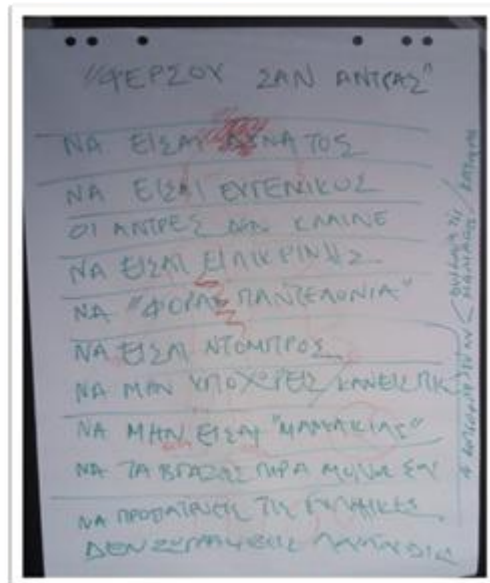 "ΦΕΡΣΟΥ ΣΑΝ ΑΝΤΡΑΣ"
ΝΑ ΕΙΣΑΙ ΔΥΝΑΤΟΣ
ΝΑ ΕΙΣΑΙ ΕΥΓΕΝΙΚΟΣ
ΟΙ ΑΝΤΡΕΣ ΔΕΝ ΚΛΑΙΝΕ
ΝΑ ΕΙΣΑΙ ΕΙΛΙΚΡΙΝΗΣ
ΝΑ "ΦΟΡΑΣ ΠΑΝΤΕΛΟΝΙΑ"
ΝΑ ΕΙΣΑΙ ΝΤΟΜΠΡΟΣ
ΝΑ ΜΗΝ ΥΠΟΧΩΡΕΙΣ
ΝΑ ΜΗΝ ΕΙΣΑΙ "ΜΑΜΑΚΙΑΣ"
ΝΑ ΤΑ ΒΓΑΖΕΙΣ ΠΕΡΑ ΜΟΝΟΣ ΣΟΥ
ΝΑ ΠΡΟΣΤΑΤΕΥΕΙΣ ΤΙΣ ΓΥΝΑΙΚΕΣ
ΔΕΝ